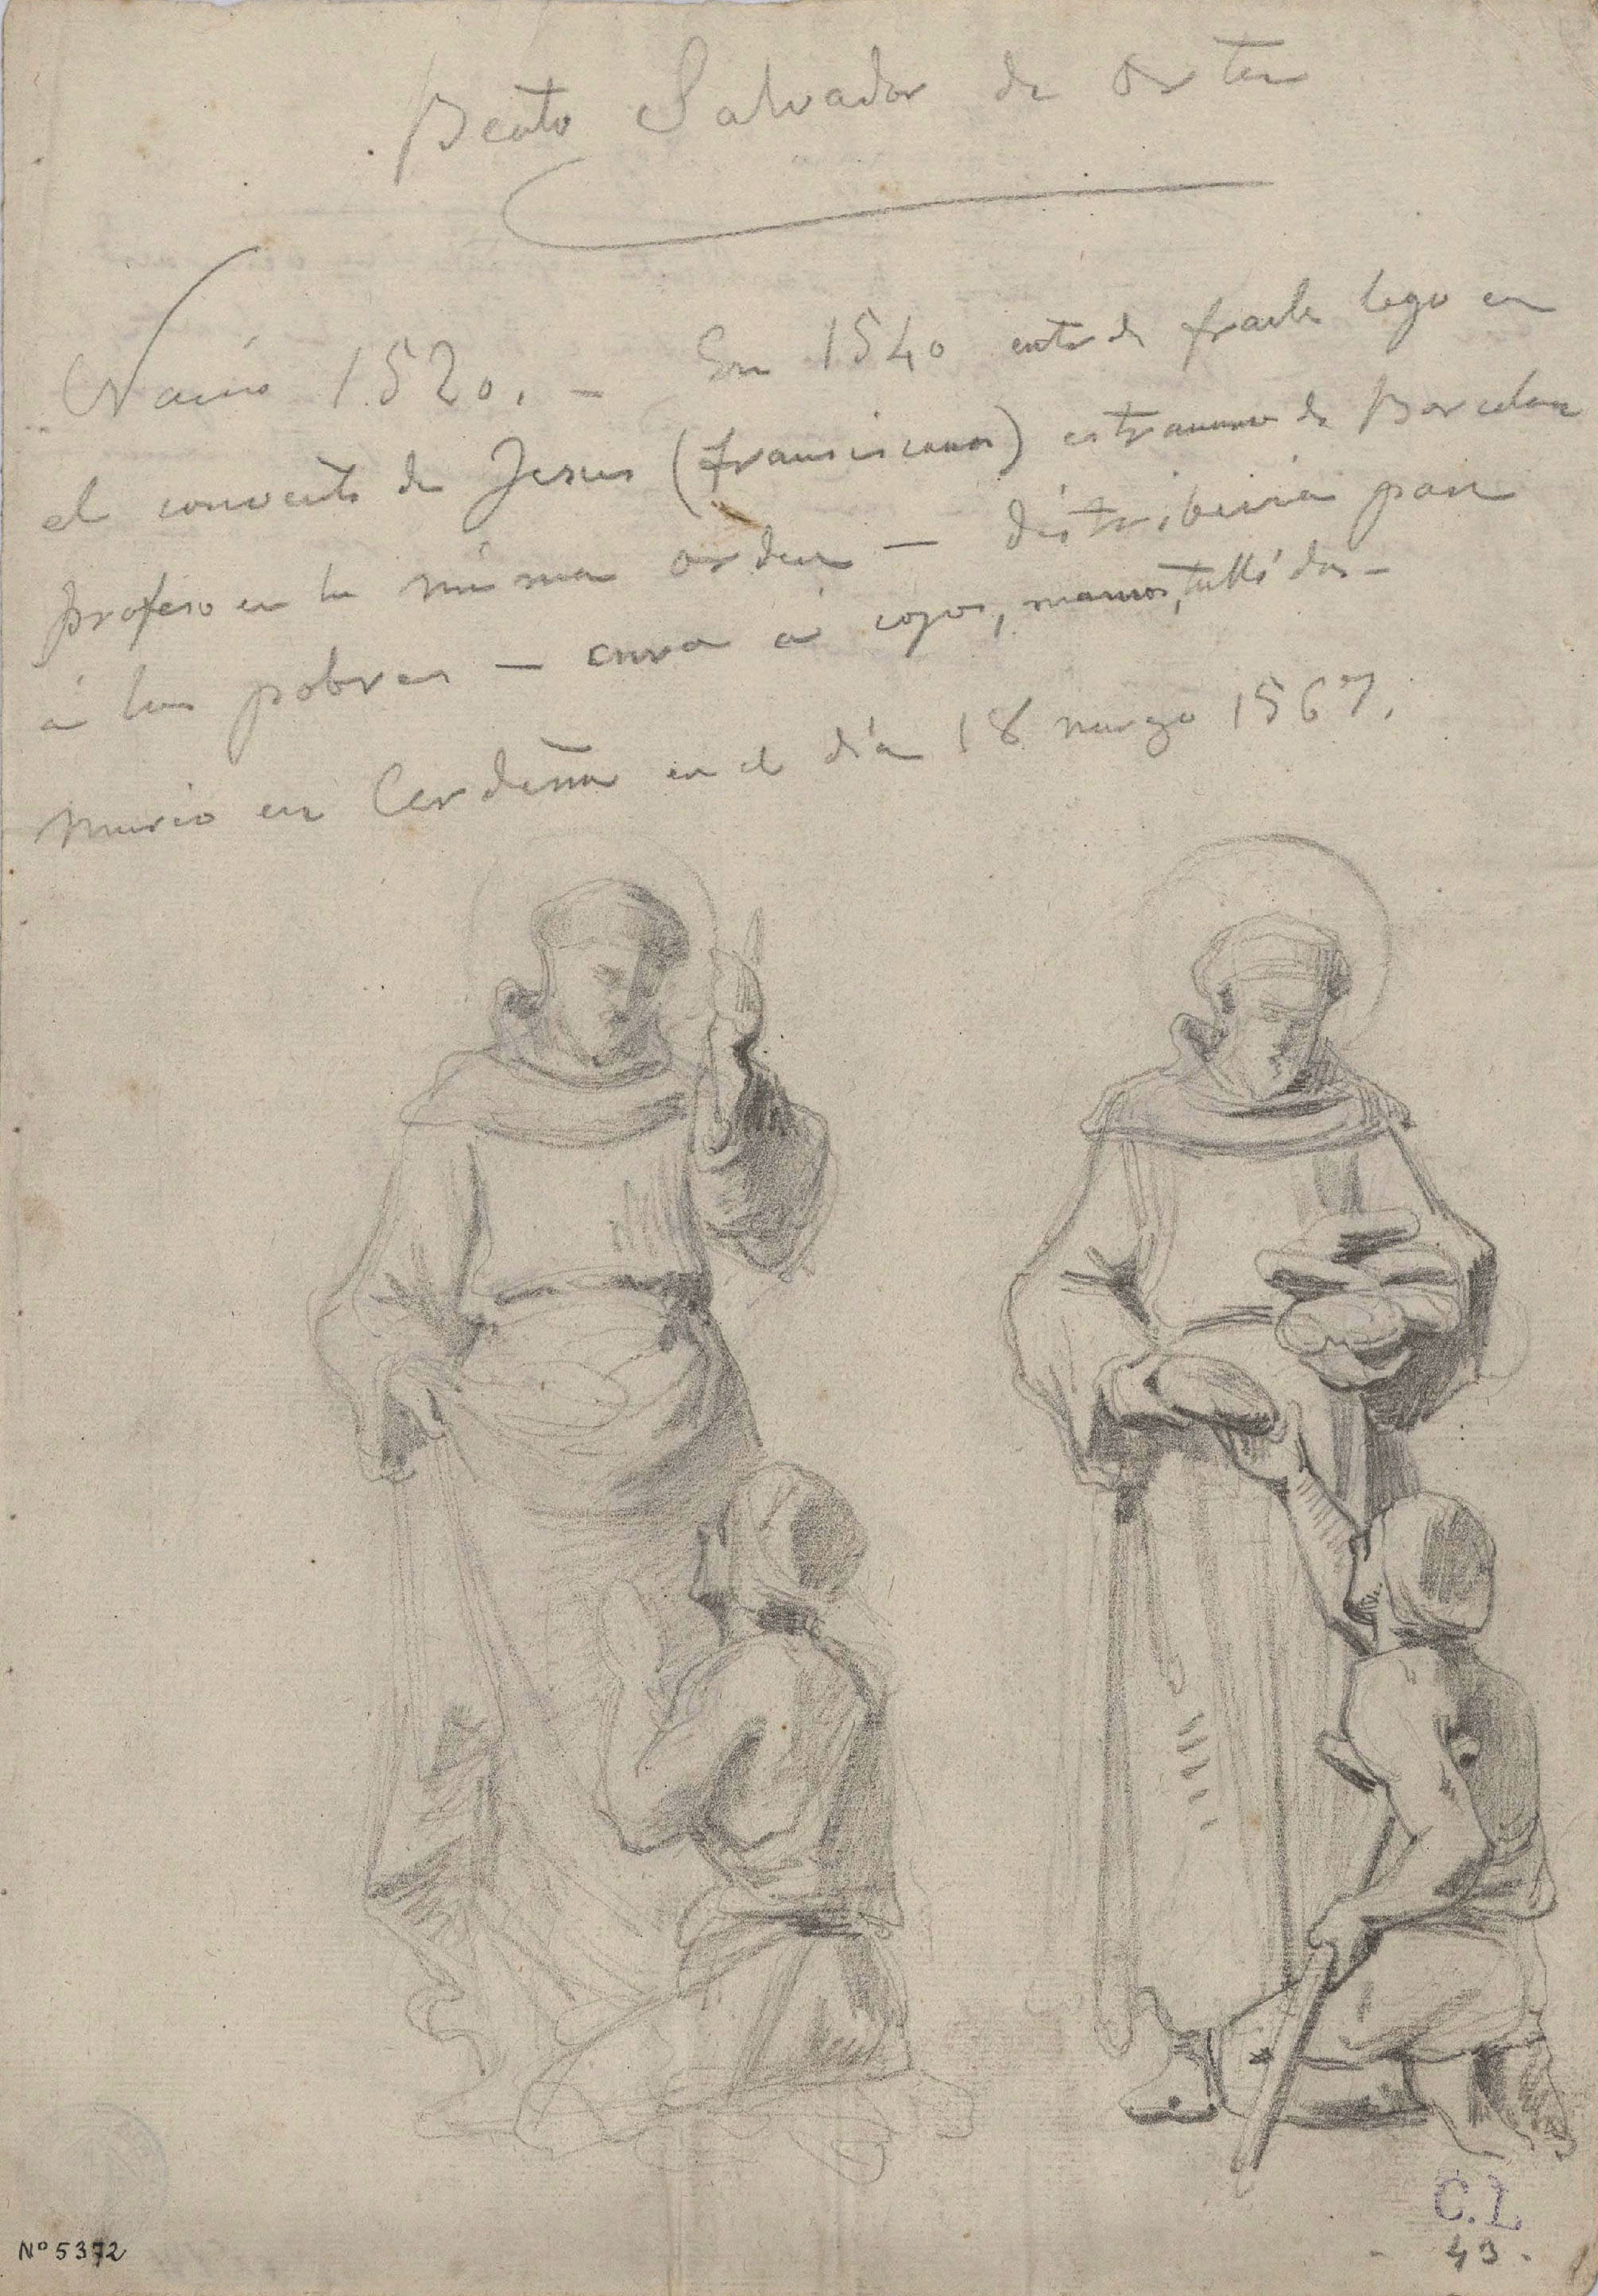 Beato Salvador de Orta
Nació 1520. - En 1540 entra de fraile lego en
el convento de Jesus (franciscanos) estramuros de Barcelona
profeso en la misma orden - distribuia pan
á los pobres - cura á cojos, mancos, tullidos -
Murio en Cerdeña en el día 18 marzo 1567.
C.L
43.
Nº 5372